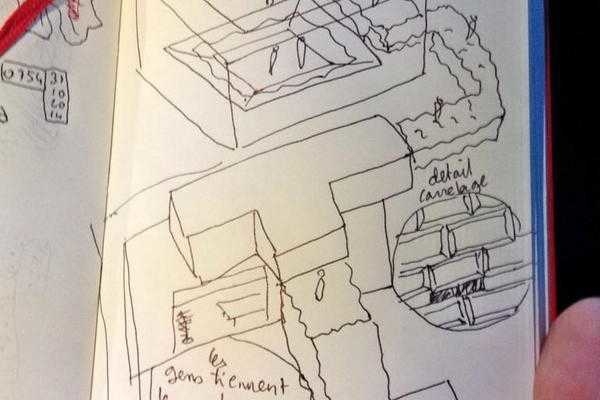 0754 31
10
60
détail
carrelage
les
gens tiennent